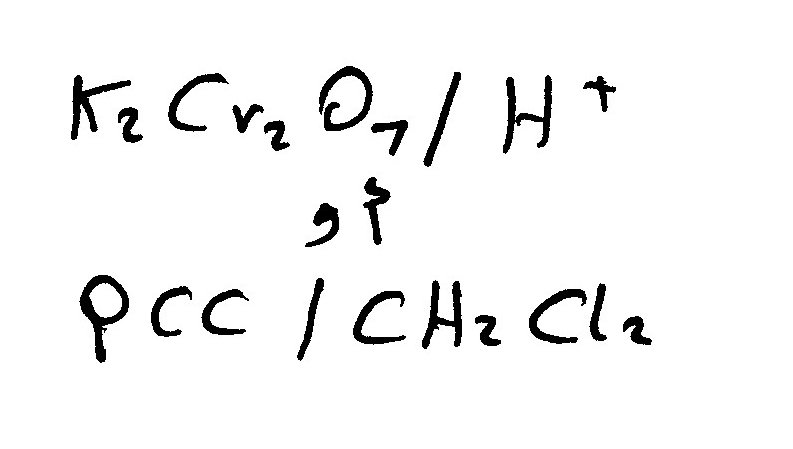 K₂Cr₂O₇/H⁺
أو
PCC/CH₂Cl₂